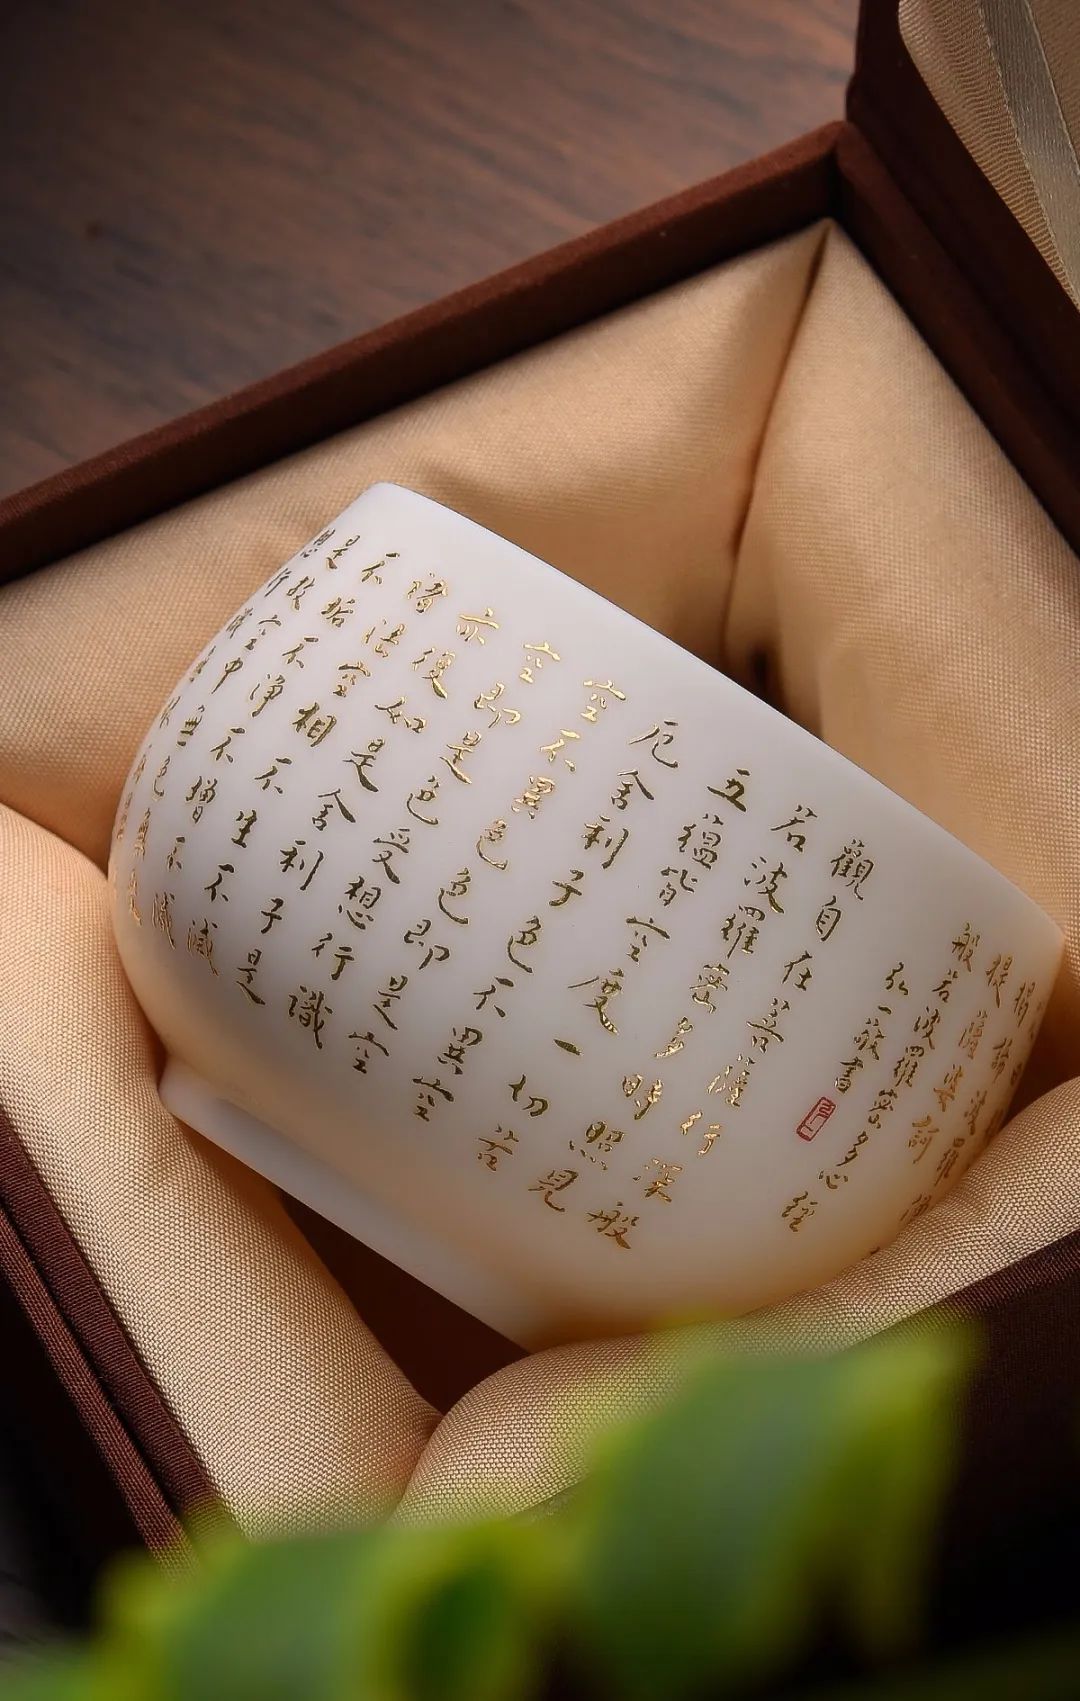 提薩婆訶
般若波羅蜜多心經
弘一敬書
觀自在菩薩行深般
若波羅蜜多時照見
五蘊皆空度一切苦
厄舍利子色不異空
空不異色色即是空
空即是色受想行識
亦復如是舍利子是
諸法空相不生不滅
不垢不淨不增不減
是故空中無色無受
想行識無眼